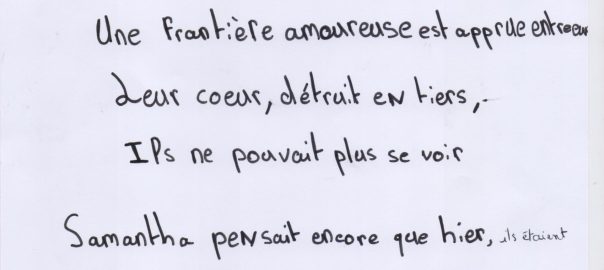 Une frantière amoureuse est apprue entre eux
Leur coeur, détruit en tiers,
Ils ne pouvait plus se voir
Samantha pensait encore que hier, ils étaient